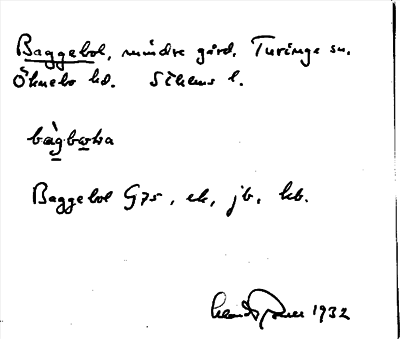 Baggebol, mindre gård, Turinge sn.
Öknebo hd. Sthlms l.
bàgbωka
Baggebol G75, ek, jb, kb.
1932